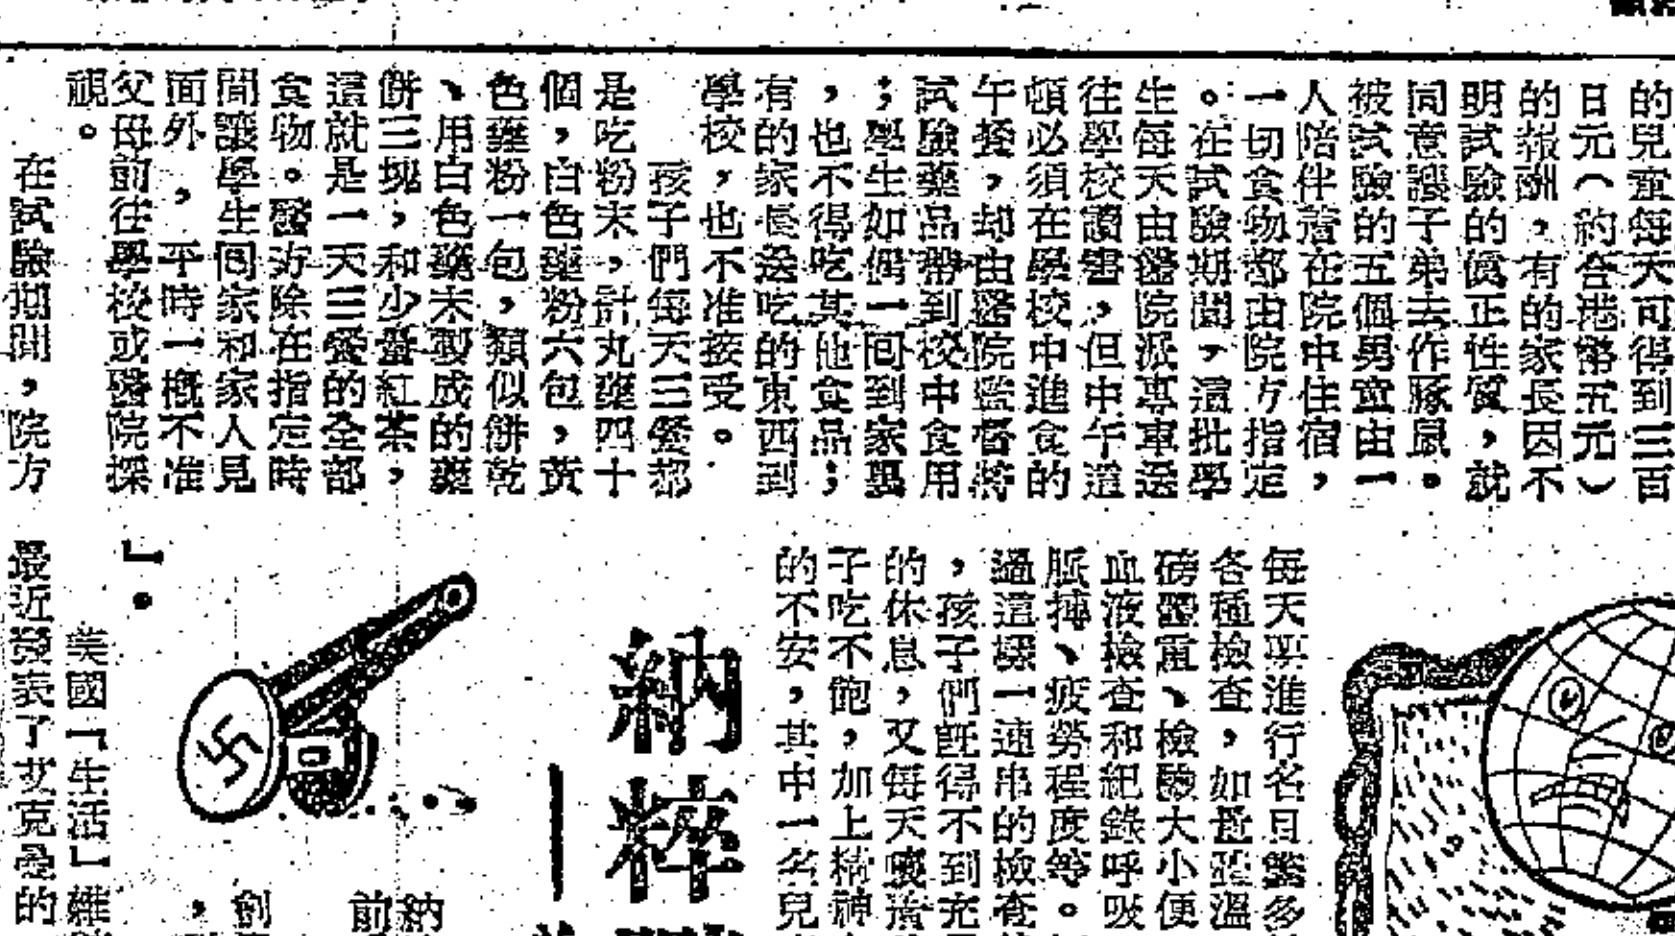 的兒童每天可得到三百
日元（約合港幣五元）
的報酬，有的家長因不
明試驗的眞正性質，就
同意讓子弟去作豚鼠。
被試驗的五個男童由一
人陪伴着在院中住宿，
一切食物都由院方指定
。在試驗期間，這批學
生每天由醫院派專車送
往學校讀書，但中午這
頓必須在學校中進食的
午餐，却由醫院監督將
試驗藥品帶到校中食用
；學生如偶一回到家裏
，也不得吃其他食品；
有的家長送吃的東西到
學校，也不准接受。
孩子們每天三餐都
是吃粉末，計丸藥四十
個，白色藥粉六包，黃
色藥粉一包，類似餅乾
、用白色藥末製成的藥
餅三塊，和少量紅茶，
這就是一天三餐的全部
食物。醫方除在指定時
間讓學生回家和家人見
面外，平時一概不准
父母前往學校或醫院探
視。
在試驗期間，院方
每天要進行名目繁多
各種檢查，如量體溫
磅體重、檢驗大小便
血液檢查和紀錄呼吸
脈搏、疲勞程度等。
過這樣一連串的檢查
，孩子們旣得不到充
的休息，又每天嚷着
子吃不飽，加上精神
的不安，其中一名兒
納粹
納
前
創
，
」。
美國「生活」雜
最近發表了艾克曼的